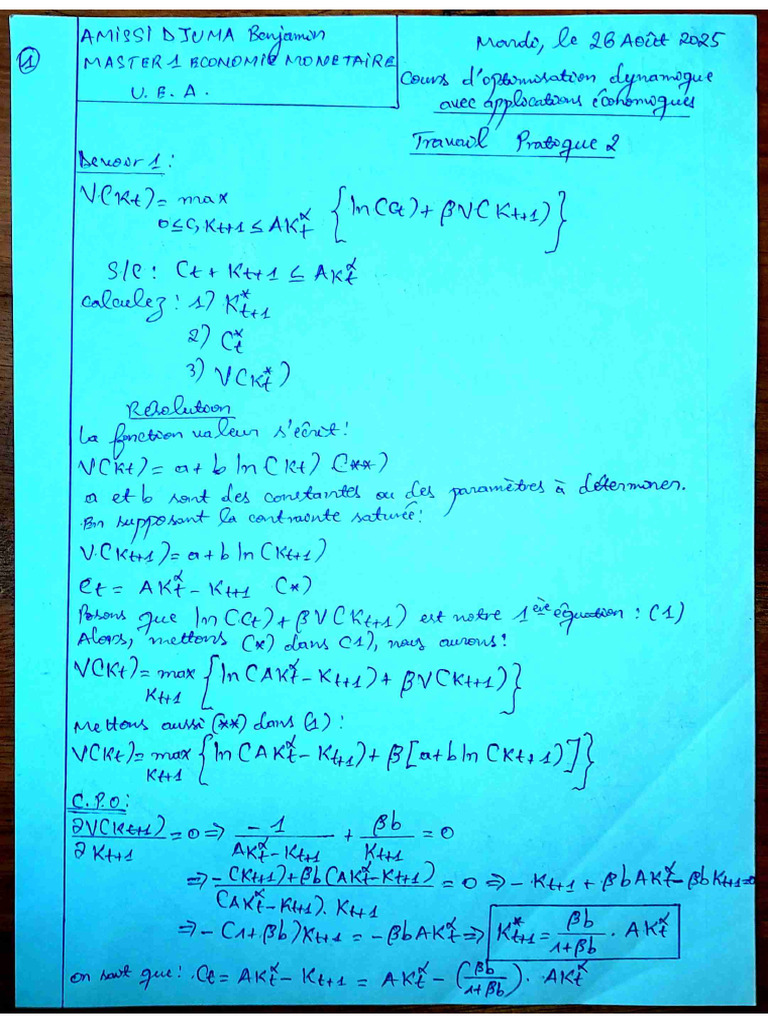 1
AMISSI DJUMA Benjamin
MASTER 1 ECONOMIE MONETAIRE
U.E.A.
Mardi, le 26 Août 2025
Cours d'optimisation dynamique
avec applications économiques
Travail Pratique 2
Devoir 1 :
V(Kt) = max {ln(Ct) + βV(Kt+1)}
0≤C, Kt+1 ≤ AKt^α
S/C : Ct + Kt+1 ≤ AKt^α
Calculez : 1) K*t+1
2) C*t
3) V(K*t)
Résolution
La fonction valeur s'écrit :
V(Kt) = a + b ln(Kt) (**)
a et b sont des constantes ou des paramètres à déterminer.
En supposant la contrainte saturée :
V(Kt+1) = a + b ln(Kt+1)
Ct = AKt^α - Kt+1 (*)
Posons que ln(Ct) + βV(Kt+1) est notre 1ère équation : (1)
Alors, mettons (*) dans (1), nous aurons :
V(Kt) = max {ln(AKt^α - Kt+1) + βV(Kt+1)}
Kt+1
Mettons aussi (**) dans (1) :
V(Kt) = max {ln(AKt^α - Kt+1) + β[a + b ln(Kt+1)]}
Kt+1
C.P.O :
∂V(Kt+1)/∂Kt+1 = 0 ⇒ -1/(AKt^α - Kt+1) + βb/Kt+1 = 0
⇒ (-(Kt+1) + βb(AKt^α - Kt+1))/((AKt^α - Kt+1).Kt+1) = 0 ⇒ -Kt+1 + βbAKt^α - βbKt+1 = 0
⇒ -(1+βb)Kt+1 = -βbAKt^α ⇒ K*t+1 = βb/(1+βb) . AKt^α
On sait que : Ct = AKt^α - Kt+1 = AKt^α - (βb/(1+βb)) . AKt^α